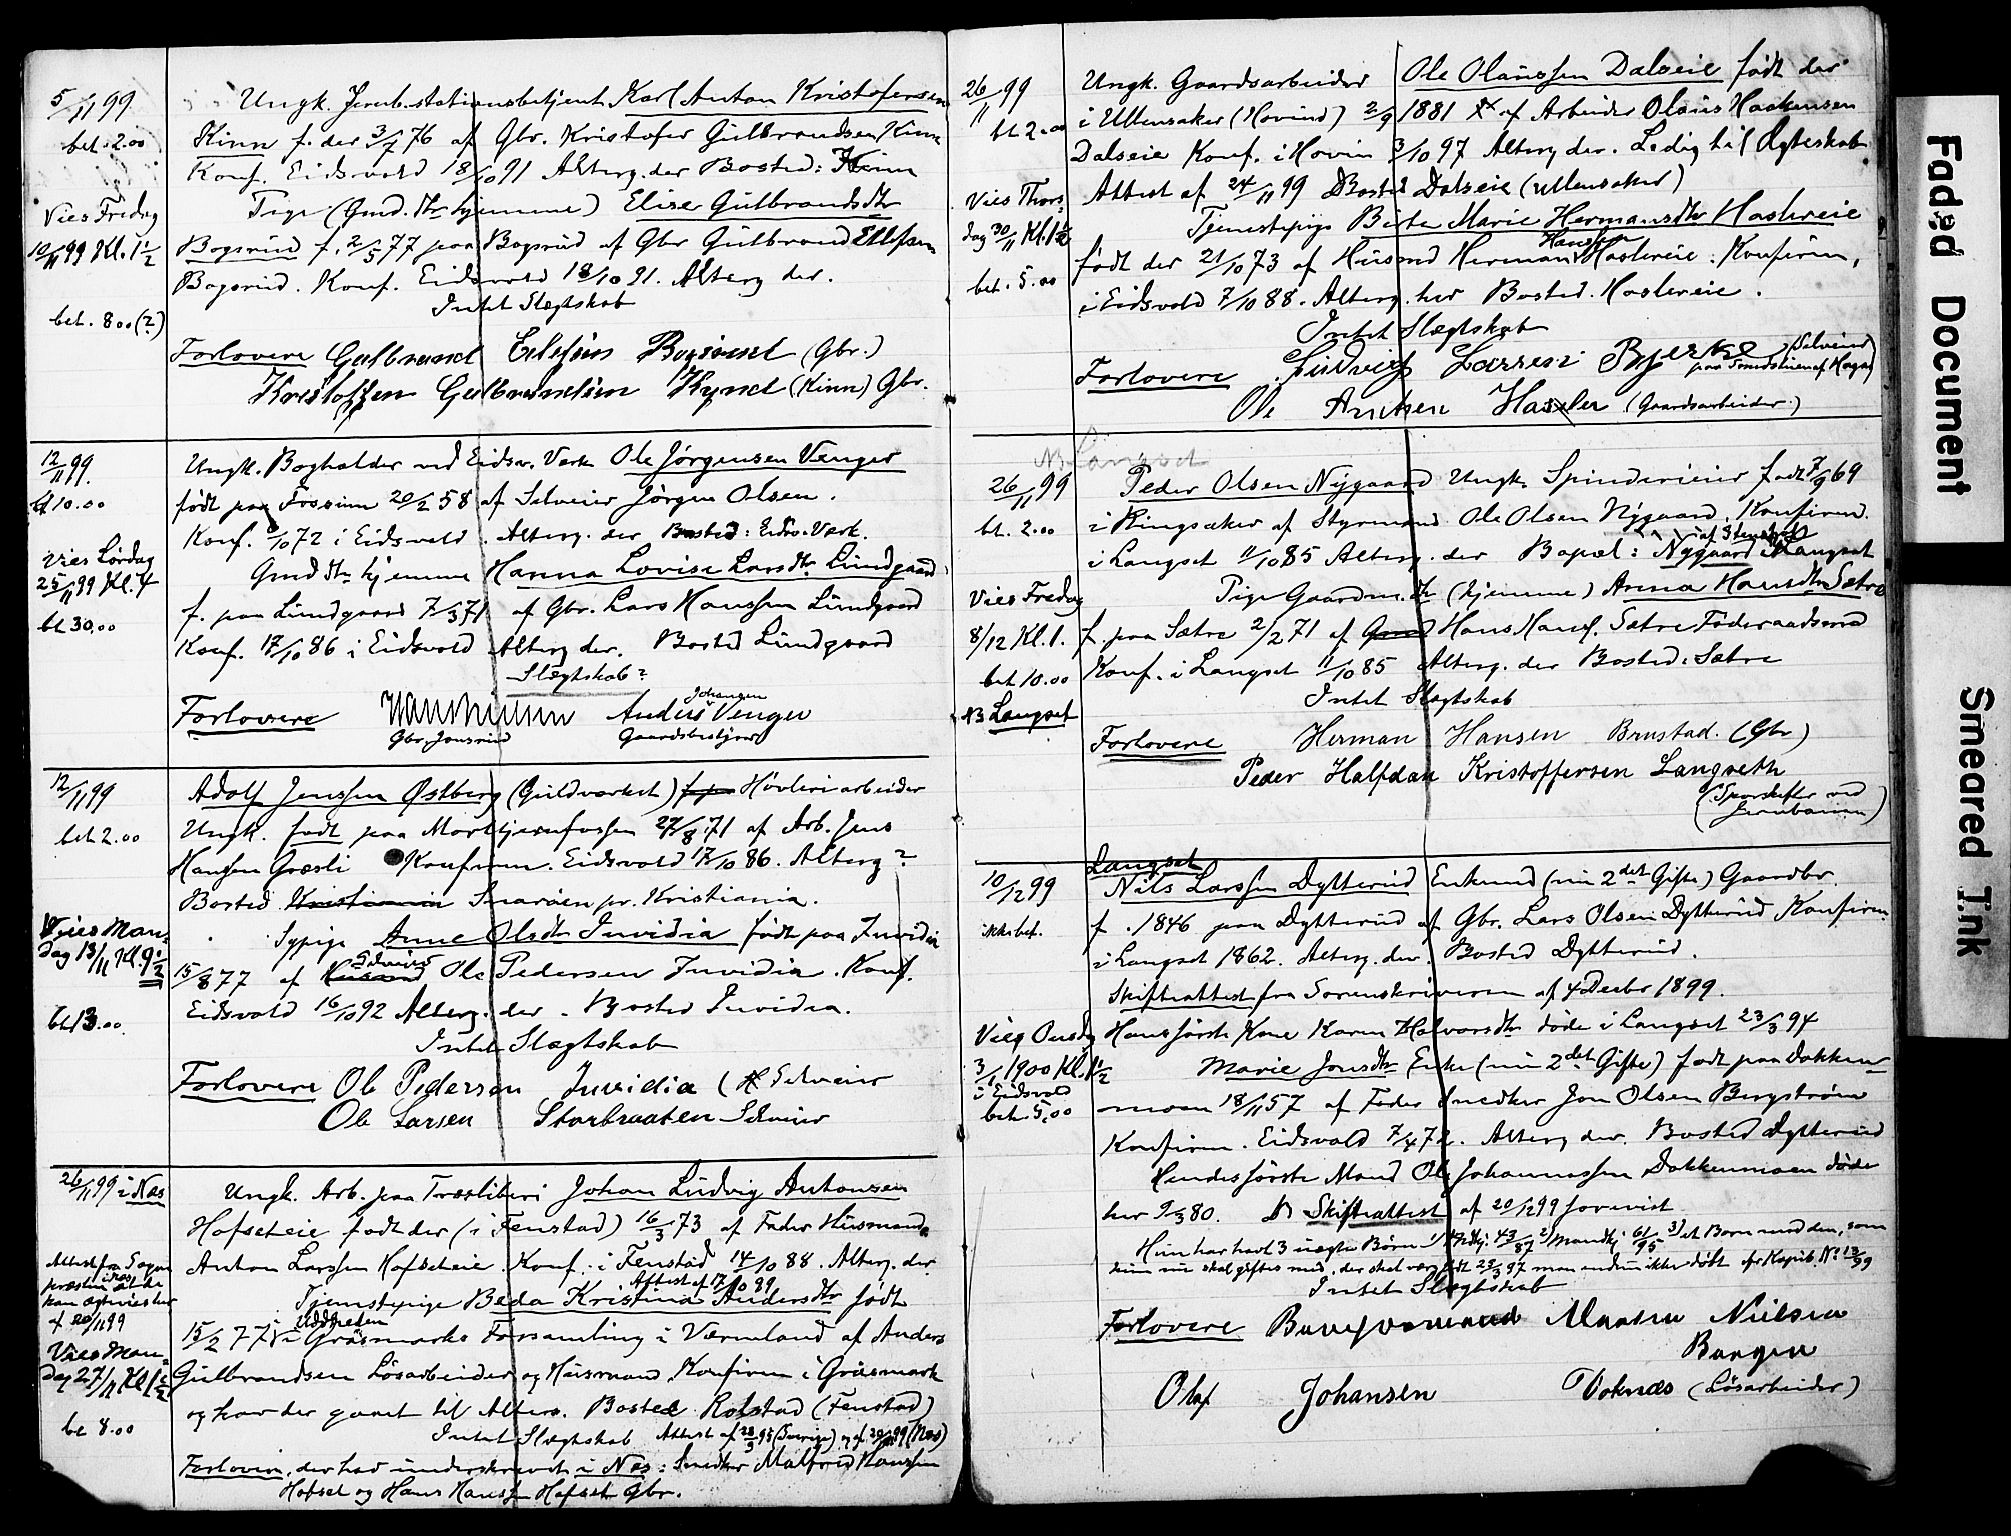 5/11 99
bet. 2.00
Vies Fredag
10/11 99 Kl. 1 1/2
bet. 8 00 (?)
Ungk. Jernb. stationsbetjent Karl Anton Kristofersen
Kinn f. der 3/7 76 af Gbr. Kristofer Gulbrandsen Kinn
Konf. Eidsvold 18/10 91 Alterg. der Bosted: Kinn
Pige (Gmd. Dtr. hjemme) Elise Gulbrandsdtr
Bogsrud f. 2/5 77 paa Bogsrud af Gbr Gulbrand Ellefsen
Bogsrud. Konf. Eidsvold 18/10 91. Alterg der.
Intet Slægtskab
Forlovere Gulbrand Ellefsen Bogsrud (Gbr.)
Kristoffer Gulbrandsen Kynd (Kinn) Gbr.
12/11 99.
bt 10.00
Vies Lørdag
25/11 99 Kl. 4
bt 30.00
Ungk. Bogholder ved Eidsv. Værk Ole Jørgensen Venger
født paa Fossum 20/2 58 af Selveier Jørgen Olsen.
Konf. 6/10 72 i Eidsvold. Alterg. der Bosted: Eidsv. Værk.
Gmd Dtr hjemme Hanna Lovise Larsdtr Lundgaard
f. paa Lundgaard 7/3 71 af Gbr. Lars Hanssen Lundgaard
Konf. 17/10 86 i Eidsvold Alterg der. Bosted Lundgaard
Slægtskab?
Johansen
Forlovere Anders Venger
Gbr. Gaardsbestyrer
12/11 99
bet 2.00
Vies Man-
dag 13/11 Kl. 9 1/2
bt 13.00.
Adolf Jenssen Østberg (Guldværket) f. paa Høvleriarbeider
Ungk. født paa Mort 27/8 71 af Arb. Jens
Hansen Græsli Konfirm. Eidsvold 17/10 86. Alterg?
Bosted Kristiania Snarøen pr. Kristiania.
Sypige Anne Olsdtr Juvidia født paa Juvidia
Selveier
15/8 77 af Husmand Ole Pedersen Juvidia. Konf.
Eidsvold 16/10 92 Alterg. der. Bosted Juvidia.
Intet Slægtskab
Forlovere Ole Pedersen Juvidia ( Selveier
Ole Larsen Storbraaten Selveier
26/11 99 i Næs
Attest fra Sogne
præsten
kan ægtevies her
af 20/11 99
Vies Man-
dag 27/11 Kl. 1 1/2
bt 8.00
Ungk. Arb. paa Træsliberi Johan Ludvig Antonsen
Hofseteie født der (i Fenstad) 16/3 73 af Fader Husmand
Anton Larssen Hofseteie. Konf. i Fenstad 14/10 88. Alterg. der.
Attest af 17/10 99
Tjenestepige Beda Kristina Andersdtr født
15/2 77 i Gräsmarks Forsamling i Värmland af Anders
Gulbrandsen Løsarbeider og Husmand Konfirm i Gräsmark
og har der gaaet til Alters. Bosted Rolstad (Fenstad)
Intet Slægtskab Attest af 28/9 99 (Sverige) og af 20/11 99 (Næs)
Forlovere, der har underskrevet i Næs: Smedker Malfred Hanssen
Hofset og Hans Hanssen Hofset Gbr.
26/11 99
bt 2.00
Vies Thors-
dag 30/11 Kl. 1 1/2
bet. 5.00
Ungk. Gaardsarbeider Ole Olaussen Dalseie født der
i Ullensaker (Hovind) 2/9 1881 af Arbeider Olaus Haakensen
Dalseie Konf. i Hovin 3/10 97 Alterg der. Ledig til Ægteskab
Attest af 24/11 99 Bosted Dalseie (Ullensaker)
Tjenestepige Berte Marie Hermansdtr Haslereie
Hanssen
født der 21/10 73 af Husmd Herman Haslereie. Konfirm.
i Eidsvold 7/10 88. Alterg. her Bosted. Haslereie.
Intet Slægtskab
Forlovere Ludvig Larsen Bjerke Selveier
Ole Arntsen Hasler (Gaardsarbeider.)
NB Langset
26/11 99
bt. 2.00
Vies Fredag
8/12 Kl. 1.
bet 10.00
NB Langset
Peder Olsen Nygaard Ungk. Spinderieier født 7/9 69
i Ringsaker af Styrmand Ole Olsen Nygaard. Konfirm.
i Langset 11/10 85 Alterg. der Bopæl: Nygaard Langset
Pige Gaardm. Dtr (hjemme) Anna Hansdtr Sætre
f. paa Sætre 2/2 71 af Gmd Hans Hans. Sætre Føderaadsmd
Konf. i Langset 11/10 85 Alterg. der Bosted: Sætre
Intet Slægtskab
Forlovere Herman Hansen Brustad. (Gbr)
Peder Halfdan Kristoffersen Langseth
(Sporskifter ved
Jernbanen)
10/12 99
ikke bet.
Vies Onsdag
3/1 1900 Kl. 1 1/2
i Eidsvold
bet. 5.00
Langset
Nils Larssen Dytterud Enkemd (nu 2det Gifte) Gaardbr.
f. 1846 paa Dytterud af Gbr. Lars Olsen Dytterud Konfirm
i Langset 1862. Alterg. der. Bosted Dytterud.
Skifteattest fra Sorenskriveren af 4 Decbr 1899.
Hans første Kone Karen Halvorsdtr døde i Langset 23/3 94
Marie Jonsdtr Enke (nu 2det Gifte) født paa Dokken-
moen 18/11 57 af Fader Snedker Jon Olsen Bergstrøm
Konfirm. Eidsvold 7/4 72. Alterg der. Bosted Dytterud
Hendes første Mand Ole Johannessen Dokkenmoen døde
her 9/3 80. Skifteattest af 20/12 99 forevist
Hun har havt 3 uægte Børn 3) et Barn med den, som
hun nu skal giftes med, der skal være født 97 men endnu ikke døbt
Intet Slægtskab
Forlovere Nielsen
Olaf Johansen (Løsarbeider)
Faded Document
Smeared Ink